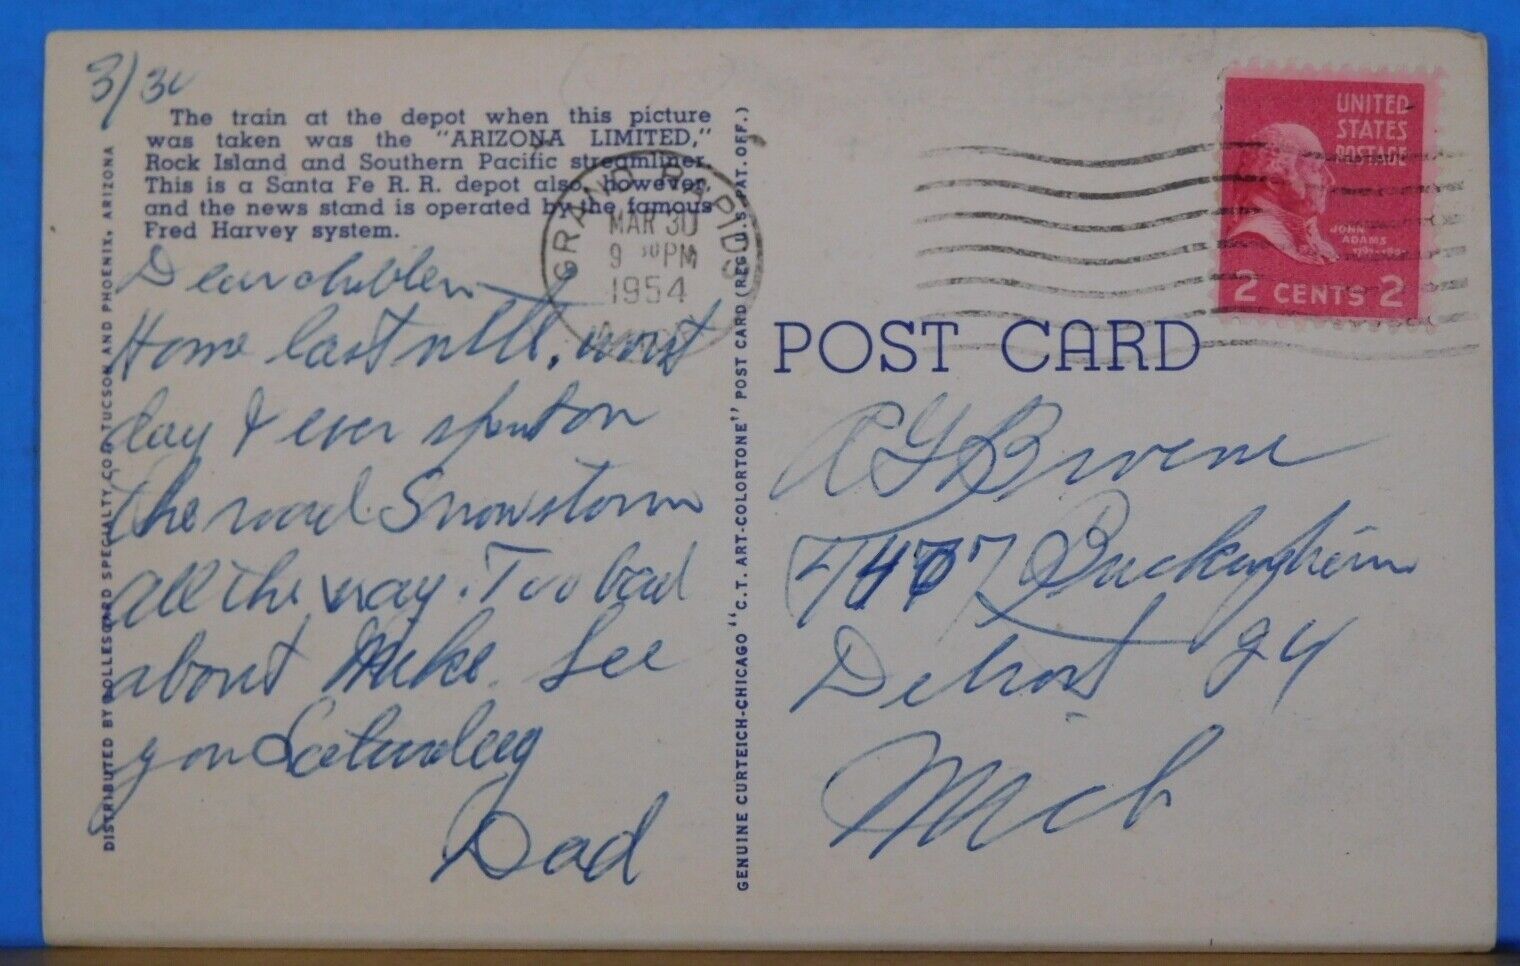 3/30
The train at the depot when this picture
was taken was the "ARIZONA LIMITED,"
Rock Island and Southern Pacific streamliner.
This is a Santa Fe R. R. depot also, however,
and the news stand is operated by the famous
Fred Harvey system.
Dear children
Home last nite, worst
day I ever spent on
the road. Snowstorm
all the way. Too bad
about Mike. See
you Saturday
Dad
DISTRIBUTED BY LOLLESGARD SPECIALTY CO., TUCSON AND PHOENIX, ARIZONA
GENUINE CURTEICH-CHICAGO "C.T. ART-COLORTONE" POST CARD (REG. U.S. PAT. OFF.)
GRAND RAPIDS
MAR 30
9 30 PM
1954
UNITED
STATES
POSTAGE
JOHN
ADAMS
2 CENTS 2
POST CARD
Buckingham
Detroit 24
Mich